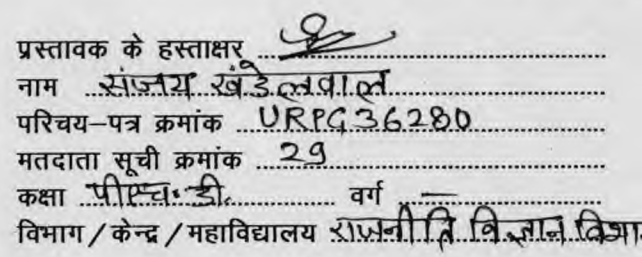 प्रस्तावक के हस्ताक्षर
नाम संजय खंडेलवाल
परिचय-पत्र क्रमांक URPG36280
मतदाता सूची क्रमांक 29
कक्षा पीएच.डी. वर्ग —
विभाग / केन्द्र / महाविद्यालय राजनीति विज्ञान विभाग